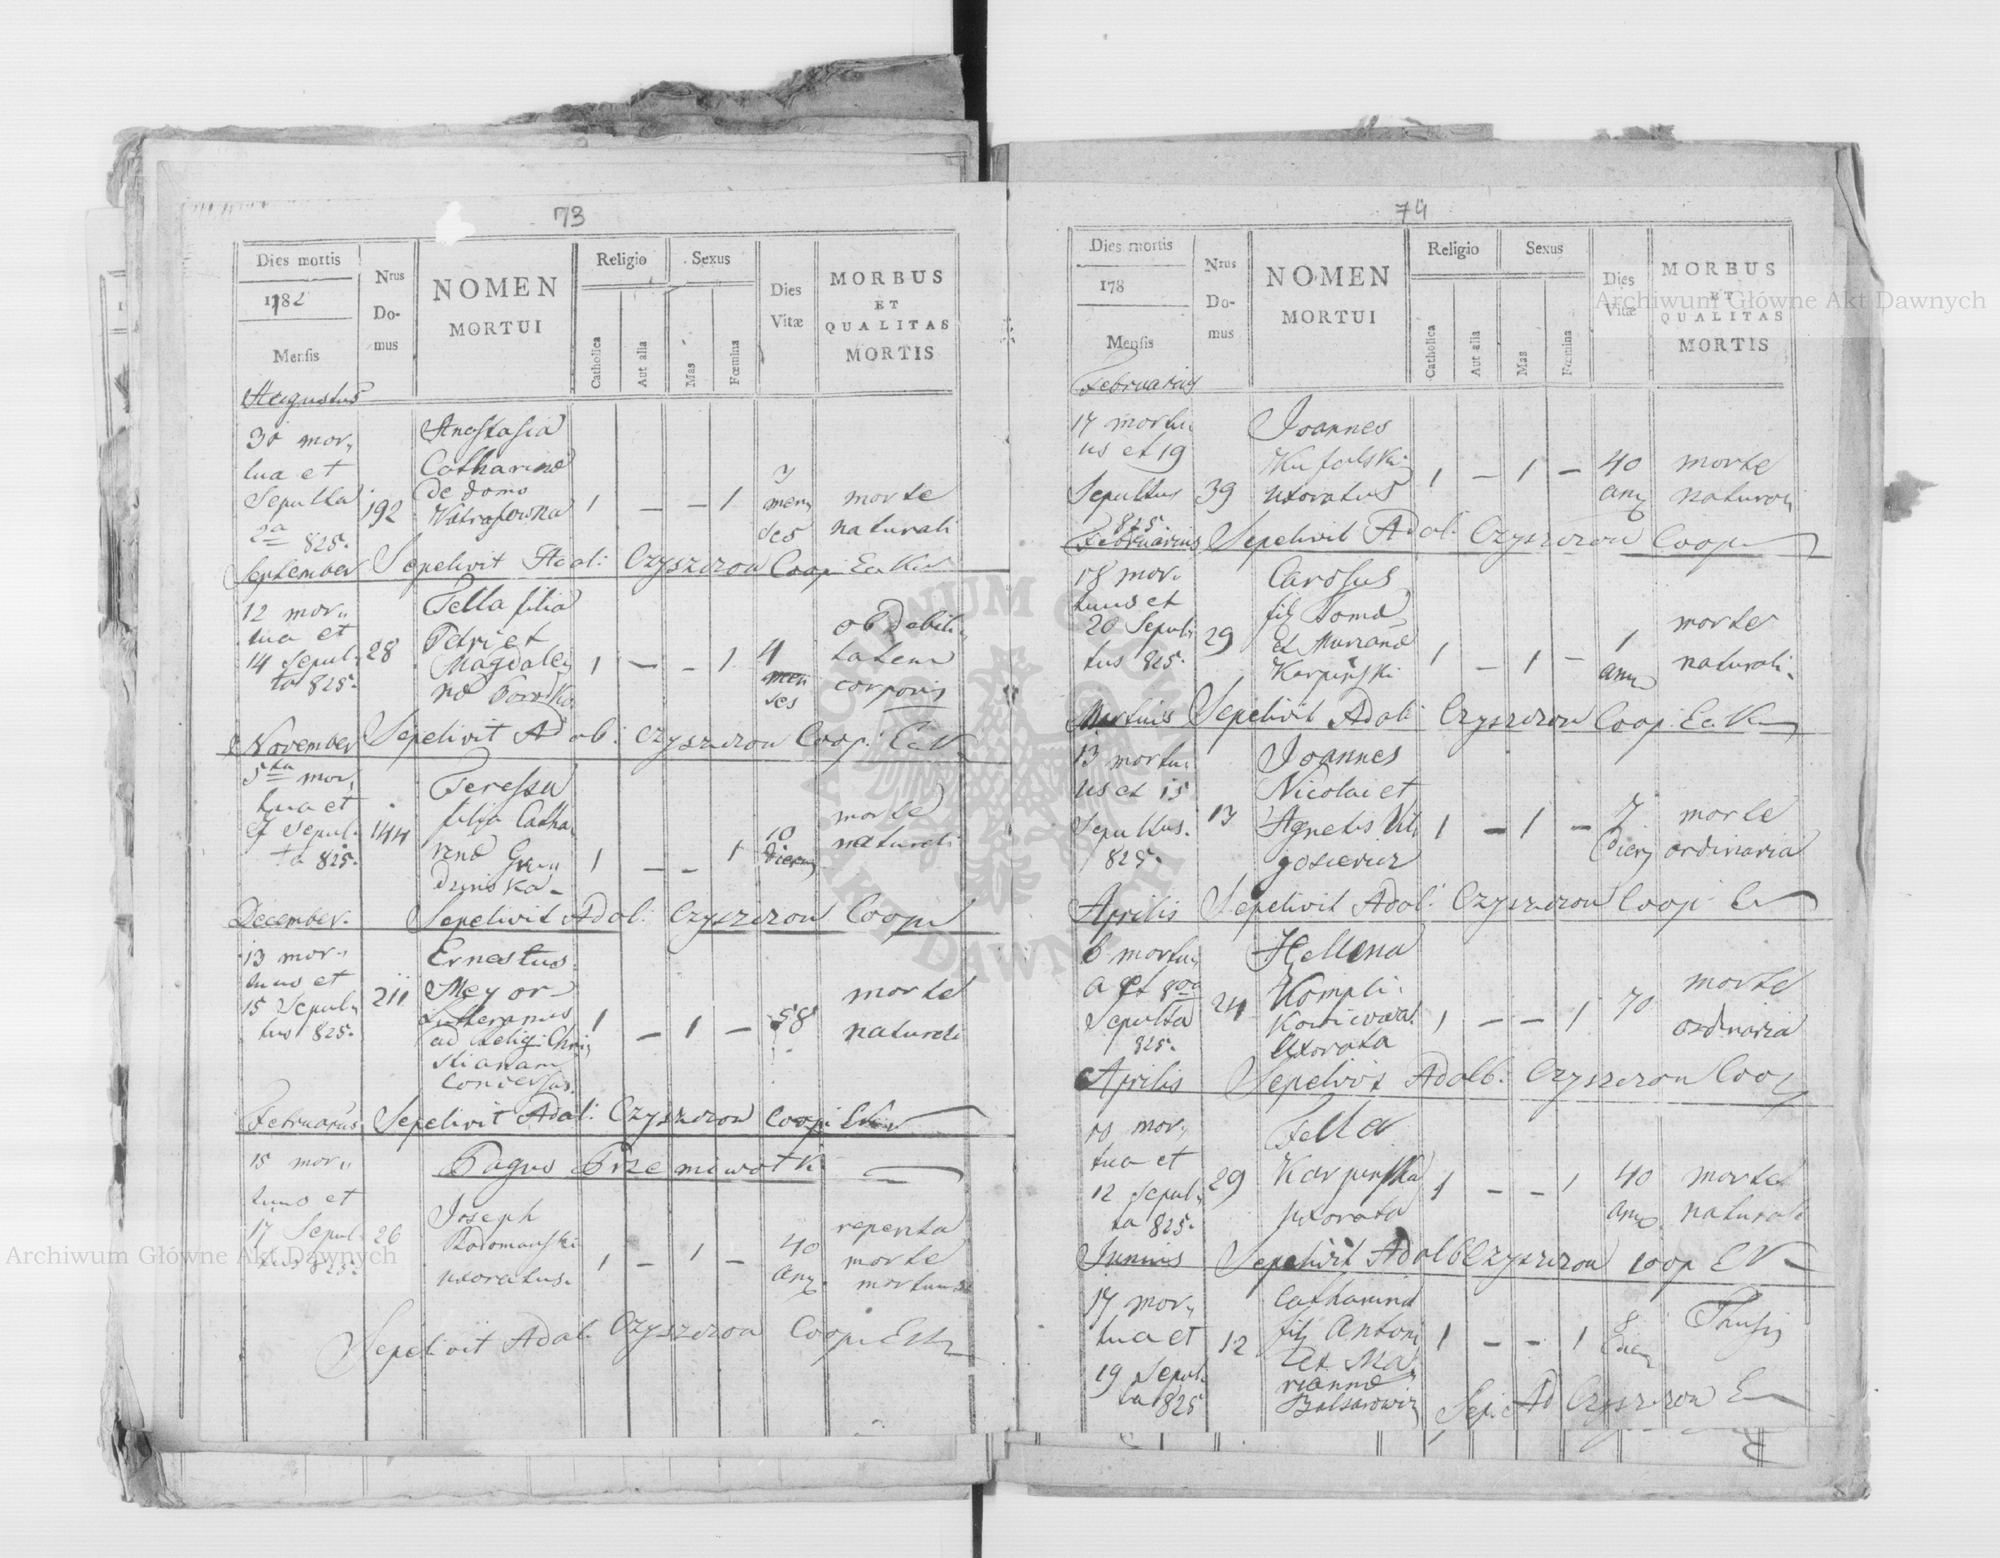 73
Dies mortis
1782
Mensis
Nrus
Do-
mus
NOMEN
MORTUI
Religio
Catholica
Aut alia
Sexus
Mas
Fœmina
Dies
Vitæ
MORBUS
ET
QUALITAS
MORTIS
Augustus
30 mor
tua et
Sepulta
2a 825.
192
Anastasia
Catharina
de domo
1 — — 1
mens
ses
morte
naturali
September Sepelivit Adal: Czyszczon Coop
12 mor
tua et
14 Sepul
ta 825.
28
Tella filia
Petri et
Magdale
nae
1 — — 1
4
men
ses
ob debili
tatem
corporis
November Sepelivit Adal: Czyszczon Coop:
5ta mor
tua et
7 Sepul
ta 825.
144
Teressa
filia Catha
rinae
1 — — 1
10
dierum
morte
naturali
December. Sepelivit Adal: Czyszczon Coop
13 mor
tuus et
15 Sepul
tus 825.
211
Ernestus
Meyor
Lutheranus
ad Relig: Chri
stianam
conversus.
1 — 1 —
58
morte
naturali
Februarius Sepelivit Adal: Czyszczon Coop:
Pagus Przemiwołk
15 mor
tuus et
17 Sepul
tus 825.
26
Joseph
uxoratus.
1 — 1 —
40
morte
Sepelivit Adal: Czyszczon Coop:
74
Dies mortis
178
Mensis
Nrus
Do-
mus
NOMEN
MORTUI
Religio
Catholica
Aut alia
Sexus
Mas
Fœmina
Dies
Vitæ
MORBUS
ET
QUALITAS
MORTIS
Februarius
17 mortu
us et 19
Sepultus
825.
39
Joannes
uxoratus
1 — 1 —
40
morte
Februarius Sepelivit Adal: Czyszczon Coop
18 mor
tuus et
20 Sepul
tus 825.
29
Carolus
Karpiński
1 — 1 —
1
morte
naturali.
Martius Sepelivit Adal: Czyszczon Coop:
13 mortu
us et 15
Sepultus.
825.
13
Joannes
Nicolai et
Agnetis
1 — 1 —
7
dier
morte
ordinaria
Aprilis Sepelivit Adal: Czyszczon Coop
6 mortu
a et
Sepulta
825.
24
Hellena
Uxorata
1 — — 1
70
morte
ordinaria
Aprilis Sepelivit Adalb: Czyszczon Coop
10 mor
tua et
12 Sepul
ta 825.
29
Tella
Karpińska
uxorata
1 — — 1
40
morte
Junius Sepelivit Adalb Czyszczon Coop
17 mor
tua et
19 Sepul
ta 825
12
Catharina
Antoni
et Ma
riannae
1 — — 1
8
Tussis
Sep: Ad Czyszczon
Archiwum Główne Akt Dawnych
Archiwum Główne Akt Dawnych
ARCHIWUM GŁÓWNE AKT DAWNYCH